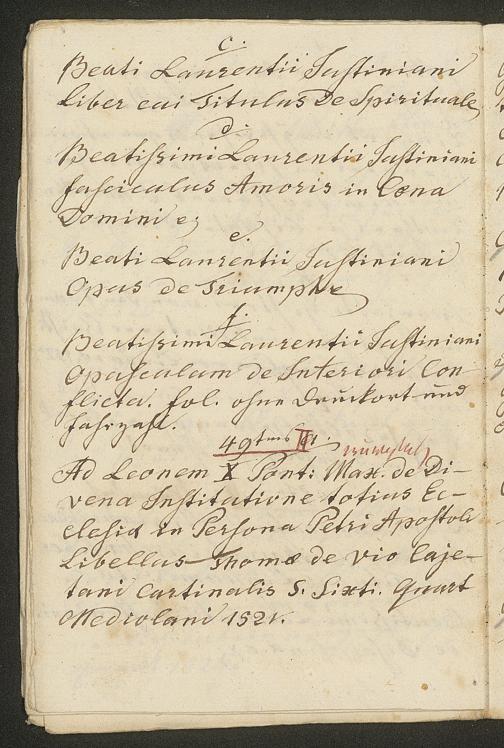 c.
Beati Laurentii Justiniani
Liber cui Titulus De Spirituale
d.
Beatissimi Laurentii Justiniani
fasciculus Amoris in Cæna
Domini e;
e.
Beati Laurentii Justiniani
Opus de Triumpho
f.
Beatissimi Laurentii Justiniani
Opusculum de Interiori Con-
flictu. fol. ohne Druckort und
Jahrzahl.
49tens
Ad Leonem X Pont: Max. de Di-
vena Institutione totius Ec-
clesiæ in Persona Petri Apostoli
Libellus Thomæ de Vio Caje-
tani Cartinalis S. Sixti. Quart
Mediolani 1521.